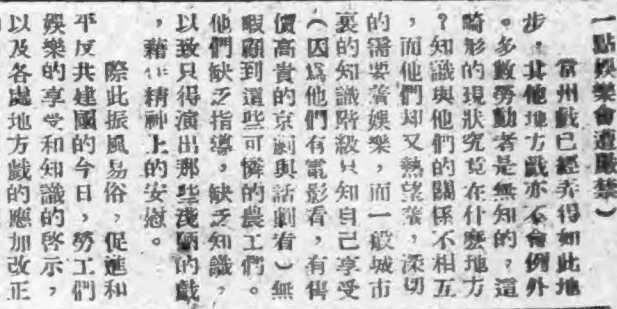 一點娛樂會遭嚴禁）
常州戲已經弄得如此地
步，其他地方戲亦不會例外
。多數勞動者是無知的，這
畸形的現狀究竟在什麼地方
？知識與他們的關係不相互
，而他們却又熱望着，深切
的需要着娛樂，而一般城市
裏的知識階級只知自己享受
（因爲他們有電影看，有借
價高貴的京劇與話劇看）無
暇顧到這些可憐的農工們。
他們缺乏指導，缺乏知識，
以致只得演出那些淺陋的戲
，藉作精神上的安慰。
際此振風易俗，促進和
平反共建國的今日，勞工們
娛樂的享受和知識的啓示，
以及各處地方戲的應加改正